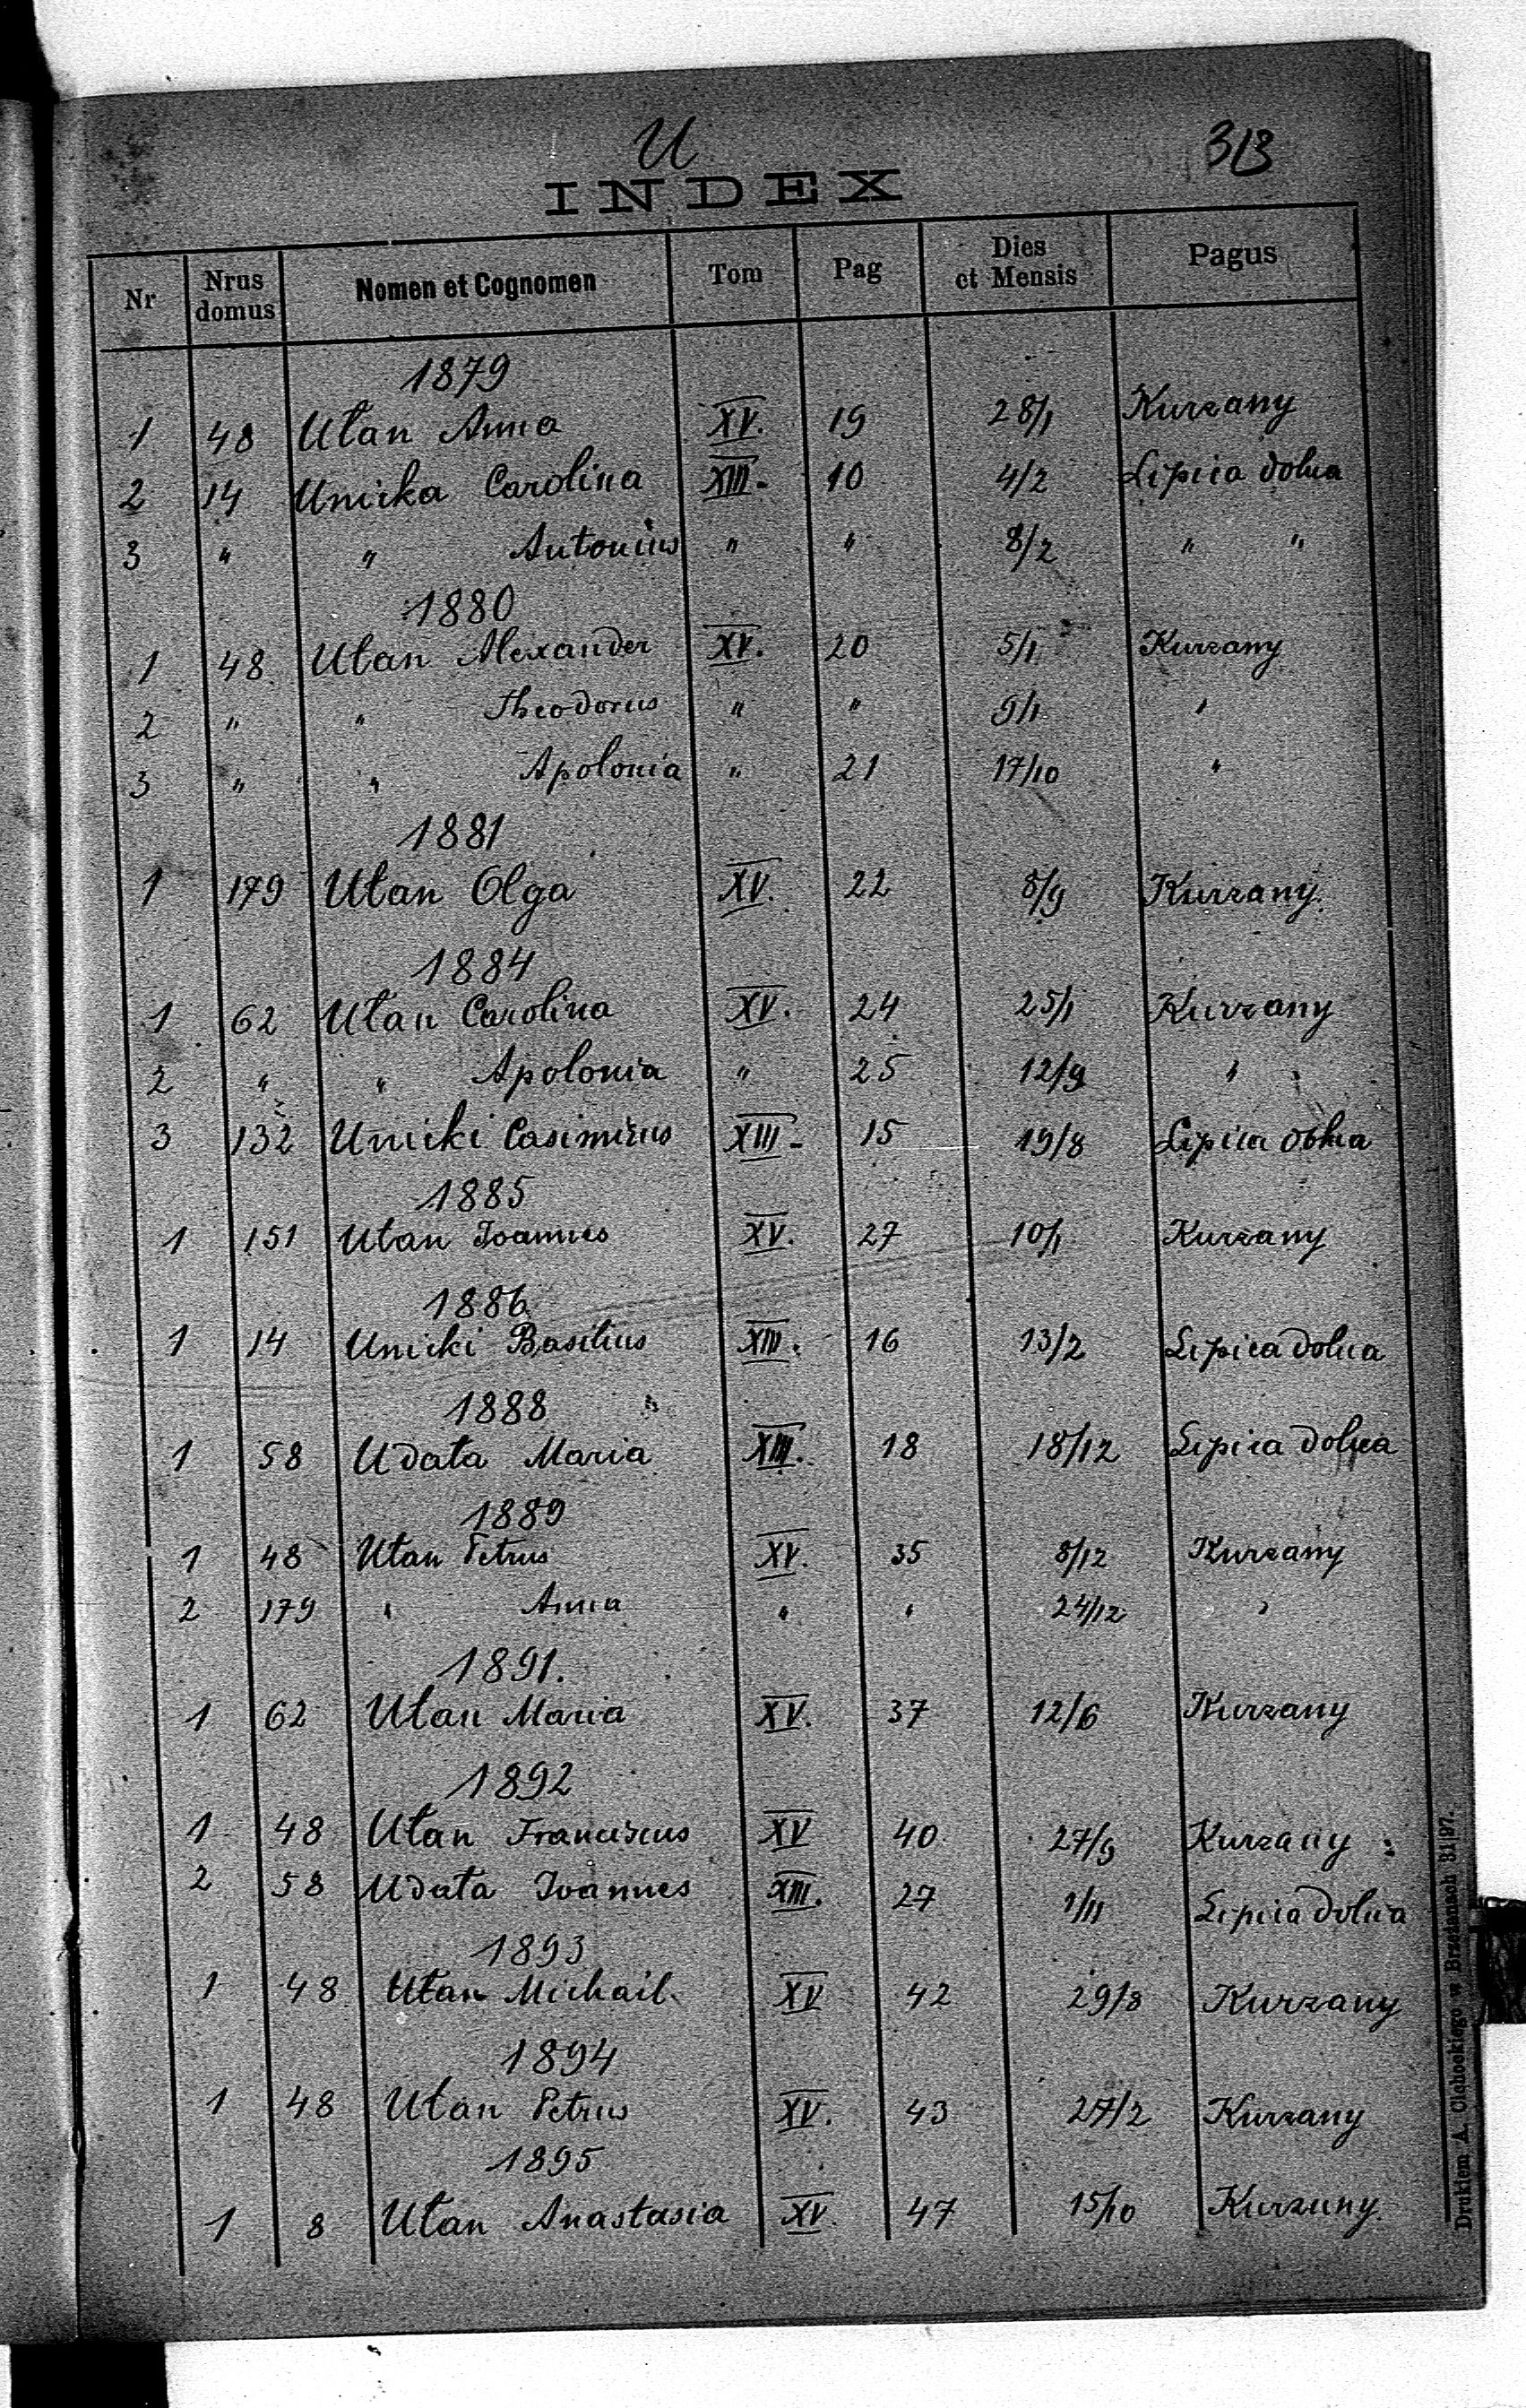 U
313
INDEX
Nr Nrus domus Nomen et Cognomen Tom Pag Dies et Mensis Pagus
1879
1 48 Ułan Anna XV. 19 28/1 Kurzany
2 14 Unicka Carolina XIII. 10 4/2 Lipica dolna
3 " " Antonius " " 8/2 " "
1880
1 48 Ułan Alexander XV. 20 5/1 Kurzany
2 " " Theodorus " " 9/1 "
3 " " Apolonia " 21 17/10 "
1881
1 179 Ułan Olga XV. 22 8/9 Kurzany.
1884
1 62 Ułan Carolina XV. 24 25/1 Kurzany
2 " " Apolonia " 25 12/9 "
3 132 Unicki Casimirus XIII- 15 19/8 Lipica dolna
1885
1 151 Ułan Joannes XV. 27 10/1 Kurzany
1886
1 14 Unicki Basilius XIII. 16 13/2 Lipica dolna
1888
1 58 Udata Maria XIII. 18 18/12 Lipica dolna
1889
1 48 Ułan Petrus XV. 35 8/12 Kurzany
2 179 " Anna " " 24/12 "
1891.
1 62 Ułan Maria XV. 37 12/6 Kurzany
1892
1 48 Ułan Franciscus XV 40 27/9 Kurzany
2 58 Udata Joannes XIII. 27 1/11 Lipica dolna
1893
1 48 Ułan Michail XV 42 29/8 Kurzany
1894
1 48 Ułan Petrus XV. 43 27/2 Kurzany
1895
1 8 Ułan Anastasia XV. 47 15/10 Kurzany.
Drukiem A. Głębockiego w Brzeżanach 31|97.